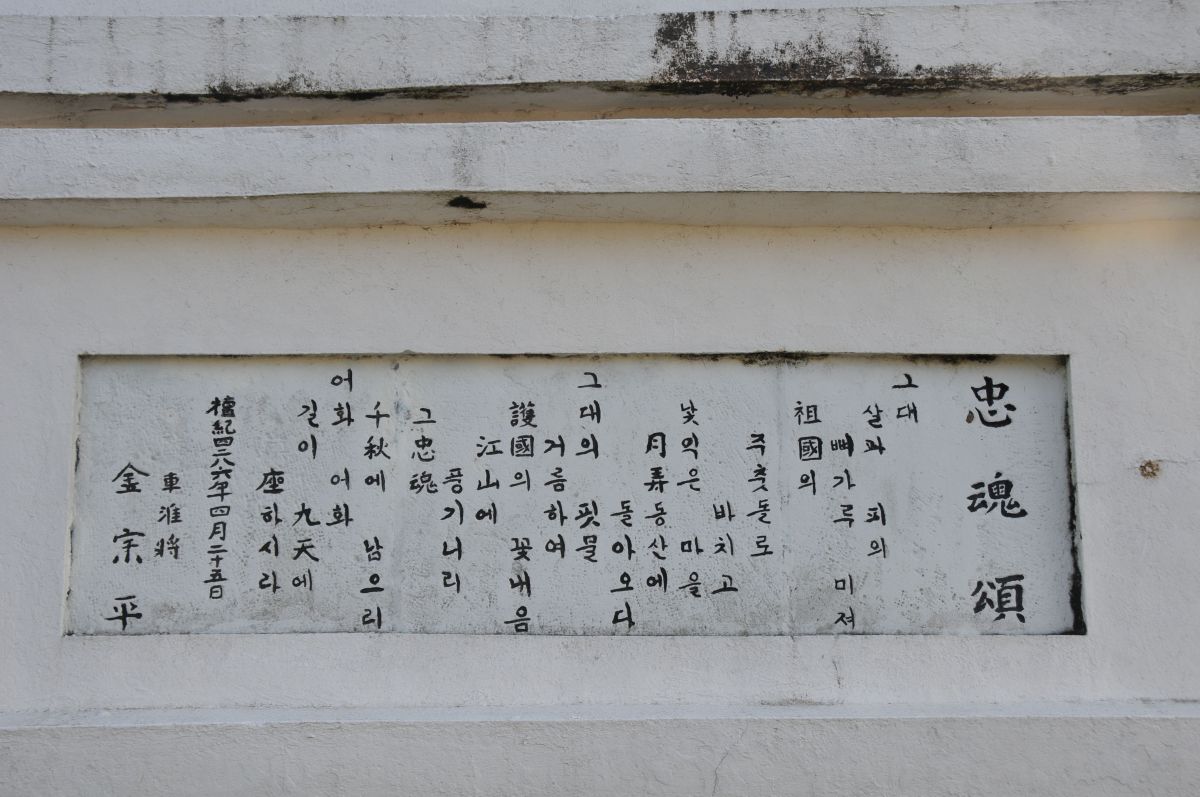 忠魂頌
그대
살과 피의
뼈가루 미져
祖國의
주춧돌로
바치고
낯익은 마을
月弄동산에
돌아오다
그대의 핏물
거름하여
護國의 꽃내음
江山에
풍기니리
그忠魂
千秋에 남으리
어화 어화
길이 九天에
座하시라
檀紀四二八六年四月二十五日
車淮將
金宗平